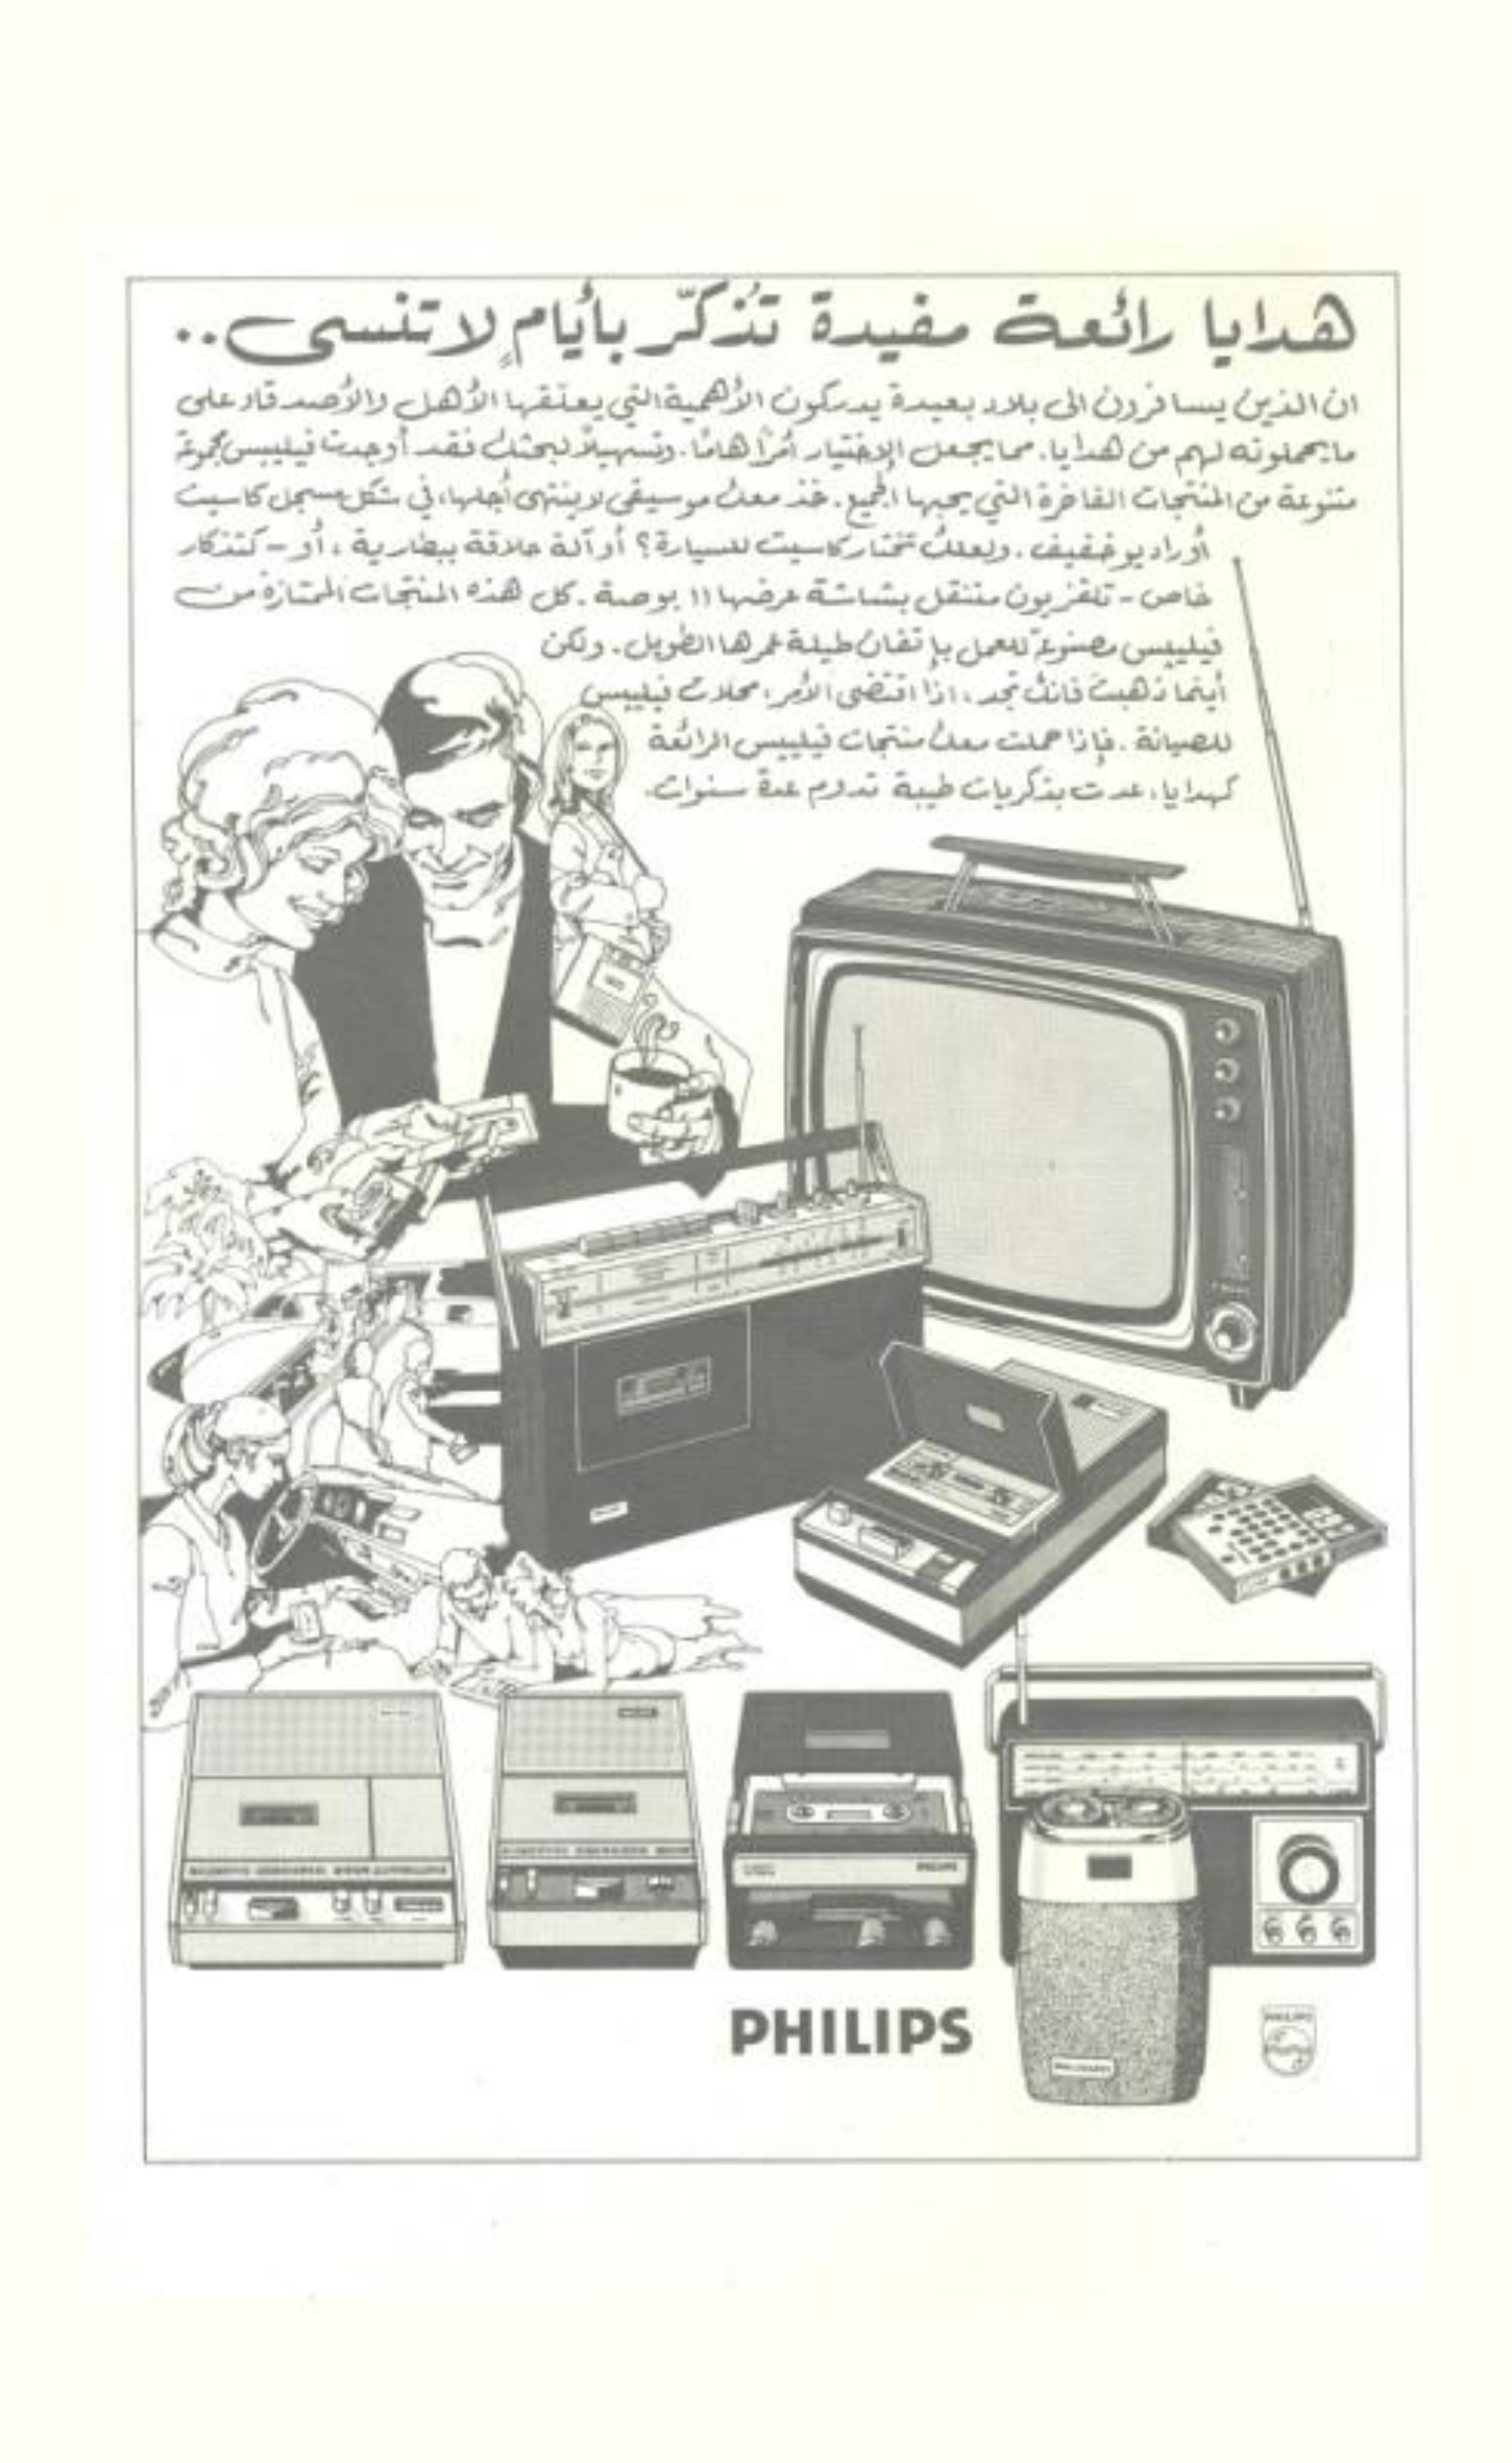 هدايا رائعة مفيدة تُذكّر بأيامٍ لا تنسى..
ان الذين يسافرون الى بلاد بعيدة يدركون الأهمية التي يعلقها الأهل والأصدقاء على
ما يحملونه لهم من هدايا، مما يجعل الإختيار أمراً هاماً. وتسهيلاً لبحثك فقد أوجدت فيليبس مجموعة
متنوعة من المنتجات الفاخرة التي يحبها الجميع. خذ معك موسيقى لا ينتهي أجلها، في شكل مسجل كاسيت
أو راديو خفيف. ولعلك تختار كاسيت للسيارة؟ أو آلة حلاقة ببطارية، أو - كتذكار
خاص - تلفزيون متنقل بشاشة عرضها ١١ بوصة. كل هذه المنتجات الممتازة من
فيليبس مصنوعة للعمل بإتقان طيلة عمرها الطويل. ولكن
أينما ذهبت فانك تجد، اذا اقتضى الأمر، محلات فيليبس
للصيانة. فإذا حملت معك منتجات فيليبس الرائعة
كهدايا، عدت بذكريات طيبة تدوم عدة سنوات.
PHILIPS
PHILIPS
PHILIPS